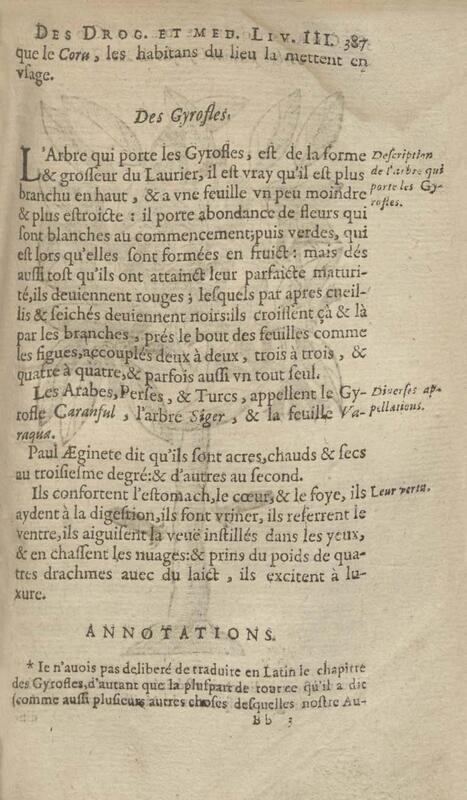 DES DROG. ET MED. LIV. III. 387
que le Coru, les habitans du lieu la mettent en
vsage.
Des Gyrofles.
L'Arbre qui porte les Gyrofles, est de la forme
& grosseur du Laurier, il est vray qu'il est plus
branchu en haut, & a vne feuille vn peu moindre
& plus estroicte : il porte abondance de fleurs qui
sont blanches au commencement; puis verdes, qui
est lors qu'elles sont formées en fruict : mais dés
aussi tost qu'ils ont attainct leur parfaicte maturi-
té, ils deuiennent rouges ; lesquels par apres cueil-
lis & seichés deuiennent noirs: ils croissent çà & là
par les branches, prés le bout des feuilles comme
les figues, accouplés deux à deux, trois à trois, &
quatre à quatre, & parfois aussi vn tout seul.
Description
de l'arbre qui
porte les Gy-
rofles.
Les Arabes, Perses, & Turcs, appellent le Gy-
rofle Caranful, l'arbre Siger, & la feuille Va-
raqua.
Diverses ap-
pellations.
Paul Æginete dit qu'ils sont acres, chauds & secs
au troisiesme degré: & d'autres au second.
Ils confortent l'estomach, le cœur, & le foye, ils
aydent à la digestion, ils font vriner, ils referrent le
ventre, ils aiguisent la veuë instillés dans les yeux,
& en chassent les nuages: & prins du poids de qua-
tres drachmes auec du laict, ils excitent à lu-
xure.
Leur vertu.
ANNOTATIONS.
* Ie n'auois pas deliberé de traduire en Latin le chapitre
des Gyrofles, d'autant que la pluspart de tout ce qu'il a dit
(comme aussi plusieurs autres choses desquelles nostre Au-
Bb 3